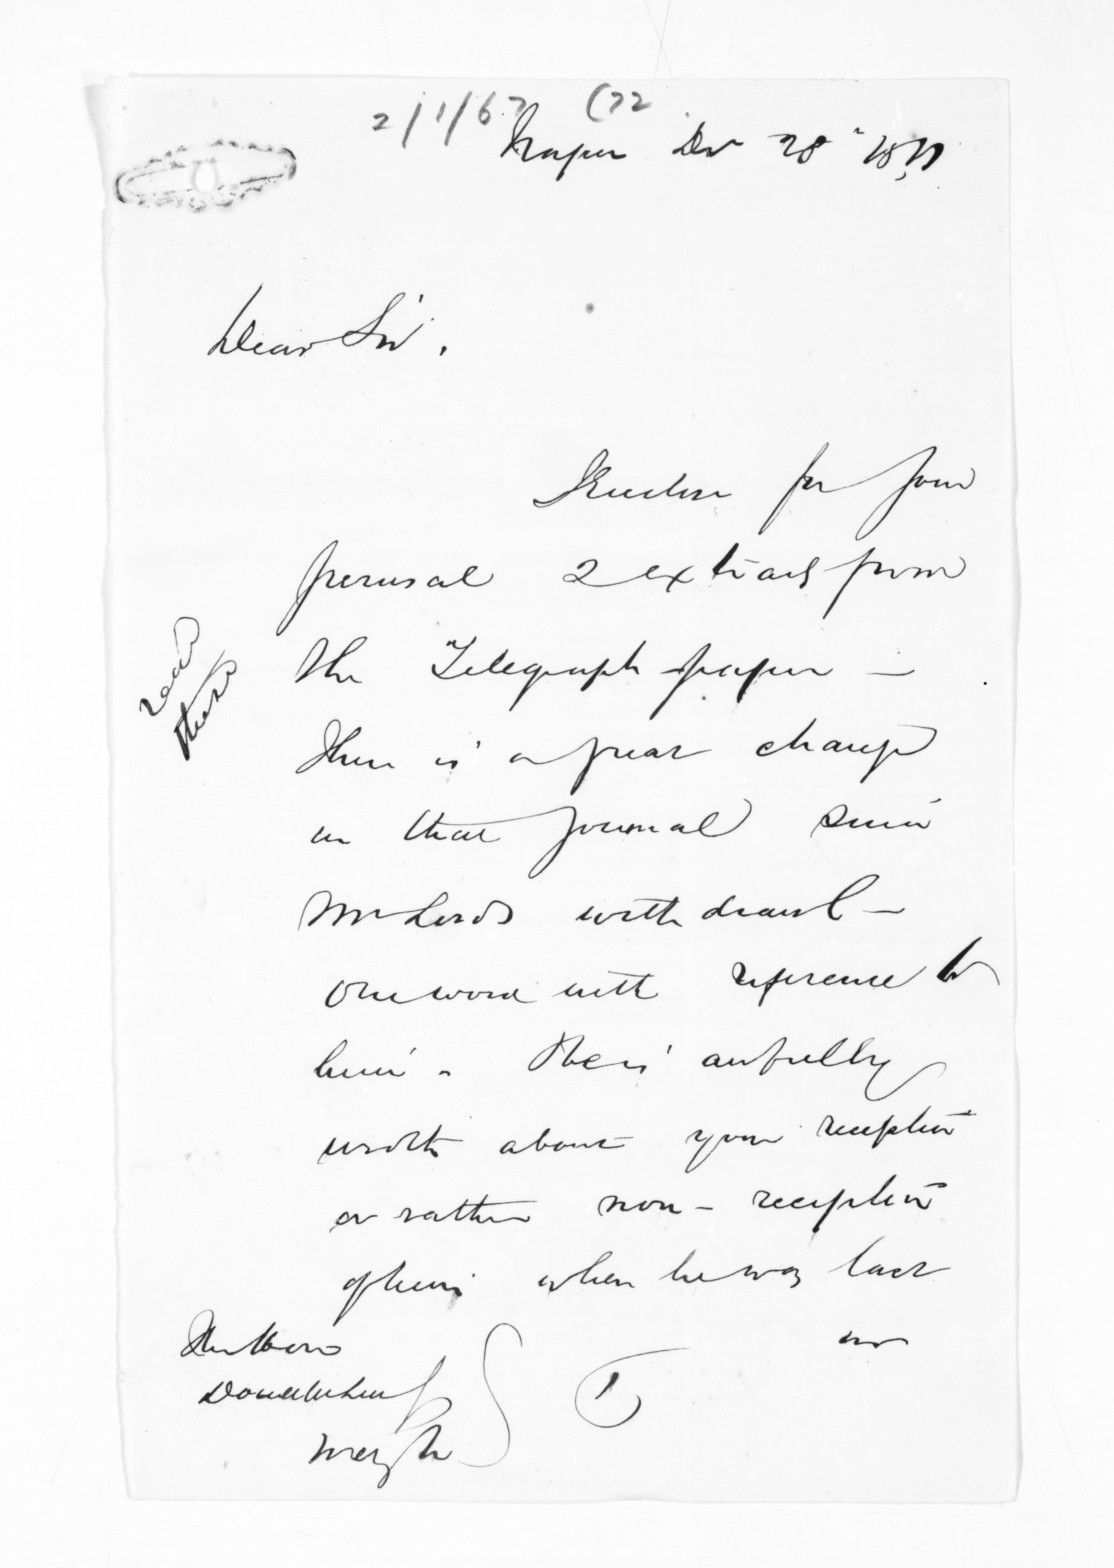 Napier Dec 28th 1871
Dear Sir.
I Enclose for your
perusal 2 extracts from
the Telegraph paper —
There is a great change
in that Journal since
Mr Lords withdrawl —
One word with reference to
him. He is awfully
wroth about your reception
or rather non-reception
of him when he was last
The Hon
Donald McLean
read
these